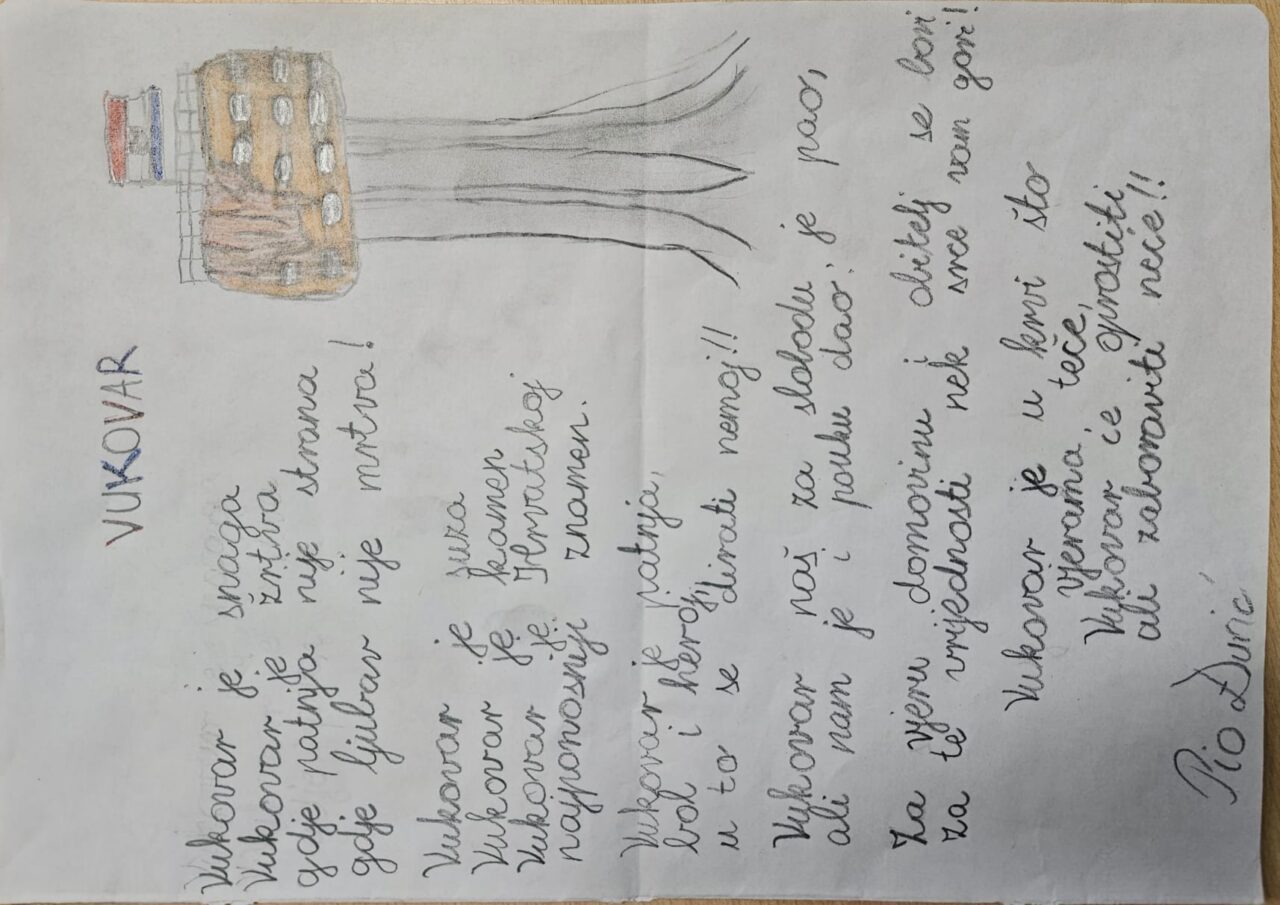 VUKOVAR
Vukovar je snaga
Vukovar je žrtva
gdje patnja nije strana
gdje ljubav nije mrtva!
Vukovar je suza
Vukovar je kamen
Vukovar je Hrvatskoj
najponosniji znamen.
Vukovar je patnja,
bol i heroj,
u to se dirati nemoj!!
Vukovar naš za slobodu je pao,
ali nam je i pouku dao:
Za vjeru domovinu i obitelj se bori
za te vrijednosti nek srce vam gori!
Vukovar je u krvi što
vjerama teče,
Vukovar će oprostiti,
ali zaboraviti neće!!
Pio Đurić